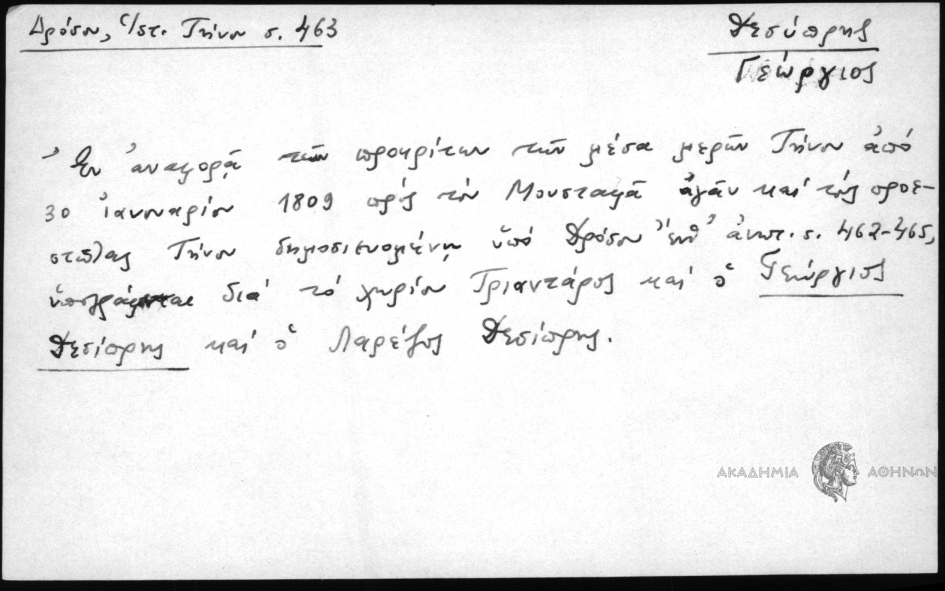 Δρόσου, Ἱστ. Τήνου σ. 463
Δεσύπρης
Γεώργιος
Ἐν ἀναφορᾷ τῶν προκρίτων τῶν μέσα μερῶν Τήνου ἀπό
30 ἰανουαρίου 1809 πρός τόν Μουσταφᾶ ἀγᾶν καί τούς προε-
στῶτας Τήνου δημοσιευομένῃ ὑπό Δρόσου ἔνθ' ἀνωτ. σ. 462-465,
ὑπογράφεται διά τό χωρίον Τριαντάρος καί ὁ Γεώργιος
Δεσίπρης καί ὁ Λαρέζος Δεσίπρης.
ΑΚΑΔΗΜΙΑ ΑΘΗΝΩΝ